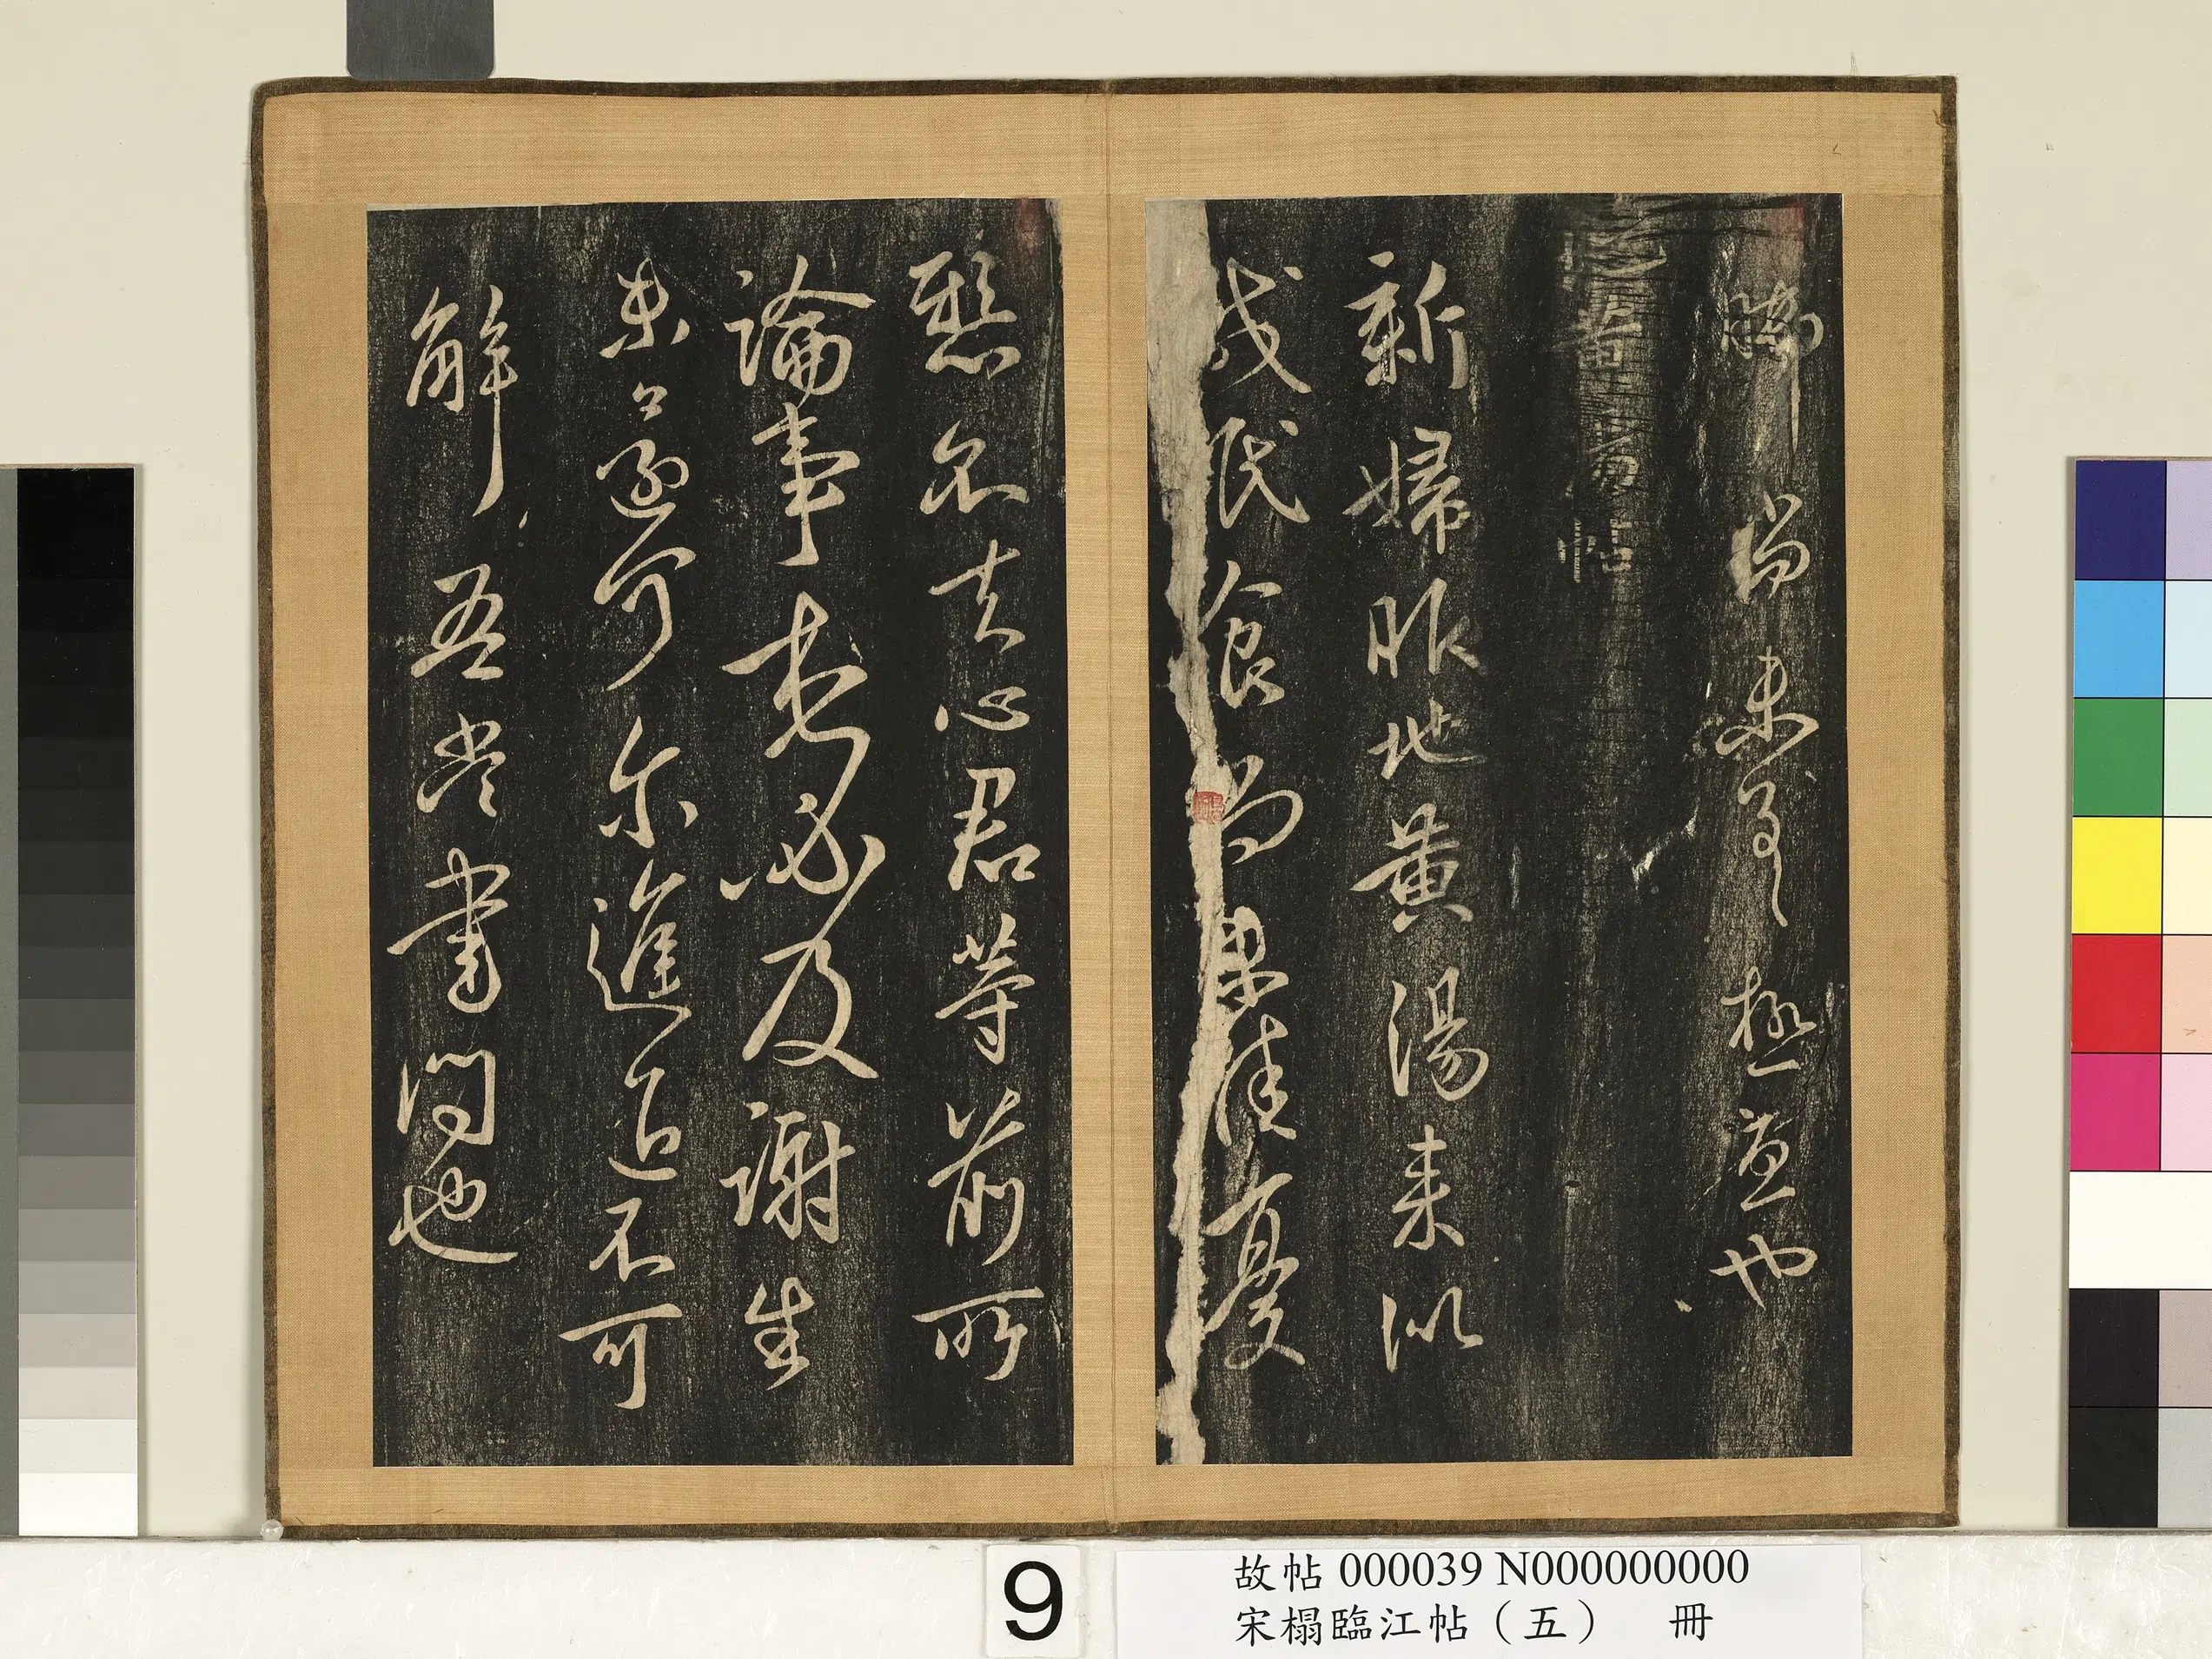 尚未極也
新婦服地黃湯來似
減眠食尚未佳憂
懸不去心君等前所
論事想必及謝生
未還何尔進退不可
解吾當書問也
9
故帖 000039 N000000000
宋榻臨江帖（五） 冊